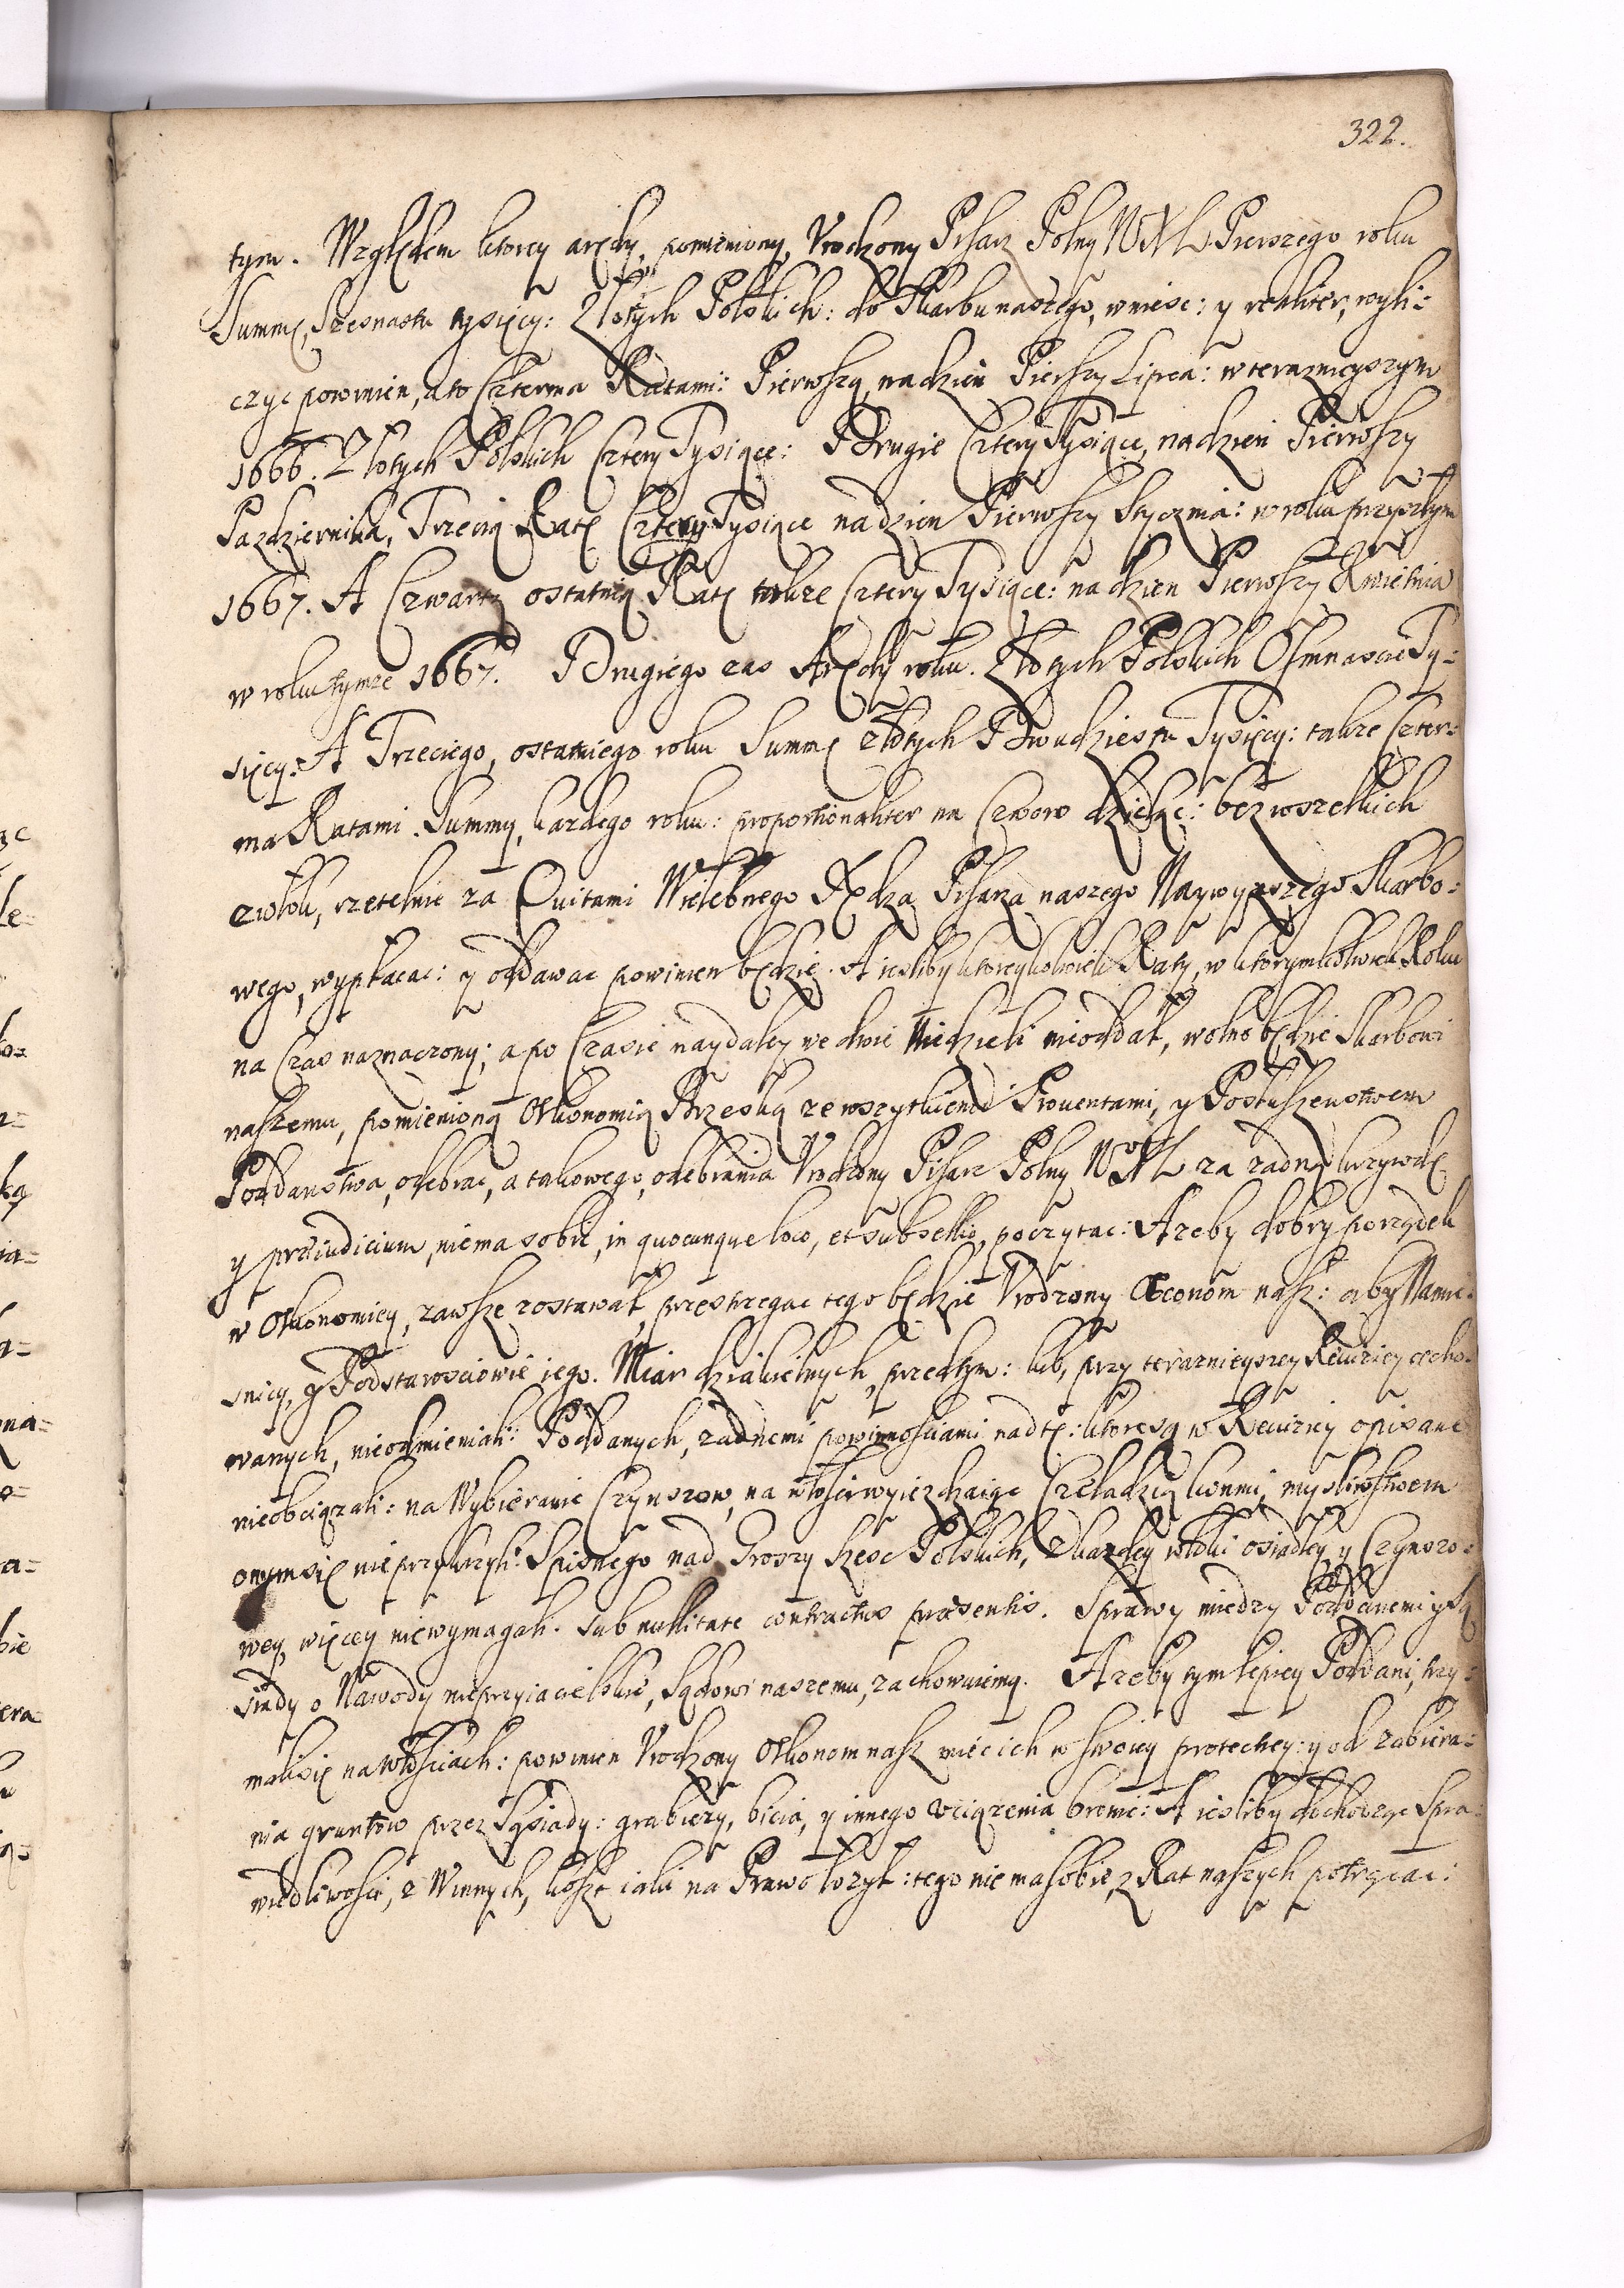 322.
tym. Względem ktorey arędy, pomieniony Vrodzony Pisarz Polny WXL Pierszego roku
Summę, Szesnastu tysięcy: Złotych Polskich: do Skarbu naszego, wniesc: y realiter, wyli=
czyc powinien, a to Czterma Ratami: Pierwszą, na dzien Pierszy Lipca: w teraznieyszym
1666. Złotych Polskich Cztery Tysiące: Drugie Cztery Tysiące, na dzien Pierwszy
Pazdziernika, Trzecią Ratę Cztery Tysiące na dzien Pierwszy Stycznia: w roku przyszłym
1667. A Czwartą ostatnią Ratę takze Cztery Tysiące: na dzien Pierwszy Kwietnia
w roku tymze 1667. Drugiego zas Arędy roku. Złotych Polskich Osmnascie Ty=
sięcy: A Trzeciego, ostatniego roku Summę złotych Dwudziestu Tysięcy: takze Czter=
ma Ratami. Summy, kazdego roku: proportionaliter na Czworo dzieląc: bez wszelkich
zwłok, rzetelnie za Quitami Wielebnego Xędza Pisarza naszego Naywyzszego Skarbo=
wego, wypłacac: y oddawac powinien będzie. A iesliby ktoreykolwiek Raty, w ktorymkolwiek Roku
na Czas naznaczony; a po Czasie naydaley we dwie Niedzieli nieoddał, wolno będzie Skarbowi
naszemu, pomienioną Okonomią Brzeską ze wszytkiemi Prouentami, y Posłuszenstwem
Poddanstwa, odebrac, a takowego, odebrania Vrodzony Pisarz Polny WXL za zadną krzywdę
y præiudicium, niema sobie, in quocunque loco, et subsellio, poczytac: A zeby dobry porządek
w Okonomiey, zawsze zostawał, przestrzegac tego będzie Vrodzony Œconom nasz: aby Namie=
snicy, y Podstarosciowie jego. Miar dziakielnych, przedtym: lub, przy teraznieyszey Rewiziey cecho=
wanych, nieodmieniali: Poddanych, zadnemi powinnosciami nad te: ktore są w Rewiziey opisane
nieobciązali: na Wybieranie Czynszow, na włosci wyiezdzaiąc Czeladzią konmi, myslistwem
onym się nieprzykrzyli: Spisnego nad Groszy szesc Polskich, z kazdey włoki osiadłey, y Czynszo=
wey, więcey niewymagali. sub nullitate contractus præsentis. Sprawy miedzy Poddanemi y Są
siady o Nawody nieprzyiacielskie, Sądowi naszemu, zachowuiemy. A zeby tym lepiey Poddani, trzy=
mali się na włosciach: powinien Vrodzony Okonom nasz miec ich w swoiey protectiey: y od zabiera=
nia gruntow przez Sąsiady: grabiezy, bicia, y innego vciązenia bronic: A iesliby dochodząc Spra=
wiedliwosci, z Winnych, koszt iaki na Prawo łozył: tego nie ma sobie, z Rat naszych potrącac: